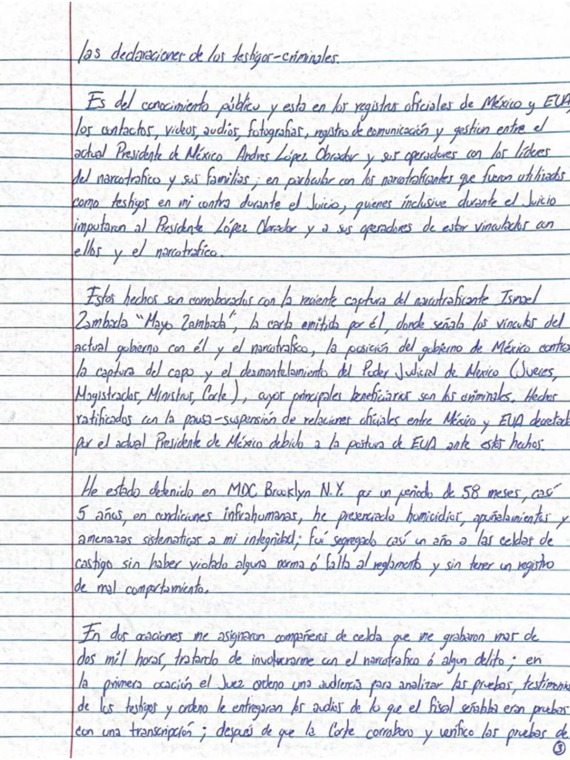 las declaraciones de los testigos-criminales.
Es del conocimiento público y esta en los registros oficiales de México y EUA
los contactos, videos, audios, fotografias, registro de comunicación y gestion entre el
actual Presidente de México Andres López Obrador y sus operadores con los líderes
del narcotrafico y sus familias; en particular con los narcotraficantes que fueron utilizados
como testigos en mi contra durante el Juicio, quienes inclusive durante el Juicio
imputaron al Presidente López Obrador y a sus operadores de estar vinculados con
ellos y el narcotrafico.
Estos hechos son corroborados con la reciente captura del narcotraficante Ismael
Zambada "Mayo Zambada", la carta emitida por él, donde señala los vinculos del
actual gobierno con él y el narcotrafico, la posición del gobierno de México contra
la captura del capo y el desmantelamiento del Poder Judicial de Mexico (Jueces,
Magistrados, Ministros, Corte), cuyos principales beneficiarios son los criminales. Hechos
ratificados con la pausa-suspensión de relaciones oficiales entre México y EUA decretada
por el actual Presidente de México debido a la postura de EUA ante estos hechos
He estado detenido en MDC Brooklyn N.Y. por un periodo de 58 meses, casí
5 años, en condiciones infrahumanas, he presenciado homicidios, apuñalamientos y
amenazas sistematicas a mi integridad; fui segregado casí un año a las celdas de
castigo sin haber violado alguna norma ó falta al reglamento y sin tener un registro
de mal comportamiento.
En dos ocaciones me asignaron compañeros de celda que me grabaron mas de
dos mil horas, tratando de involucrarme con el narcotrafico ó algun delito; en
la primera ocación el Juez ordeno una audiencia para analizar las pruebas, testimonio
de los testigos y ordeno le entregaran los audios de lo que el fiscal señalaba eran pruebas
con una transcripción; después de que la Corte corroboro y verifico las pruebas de
3